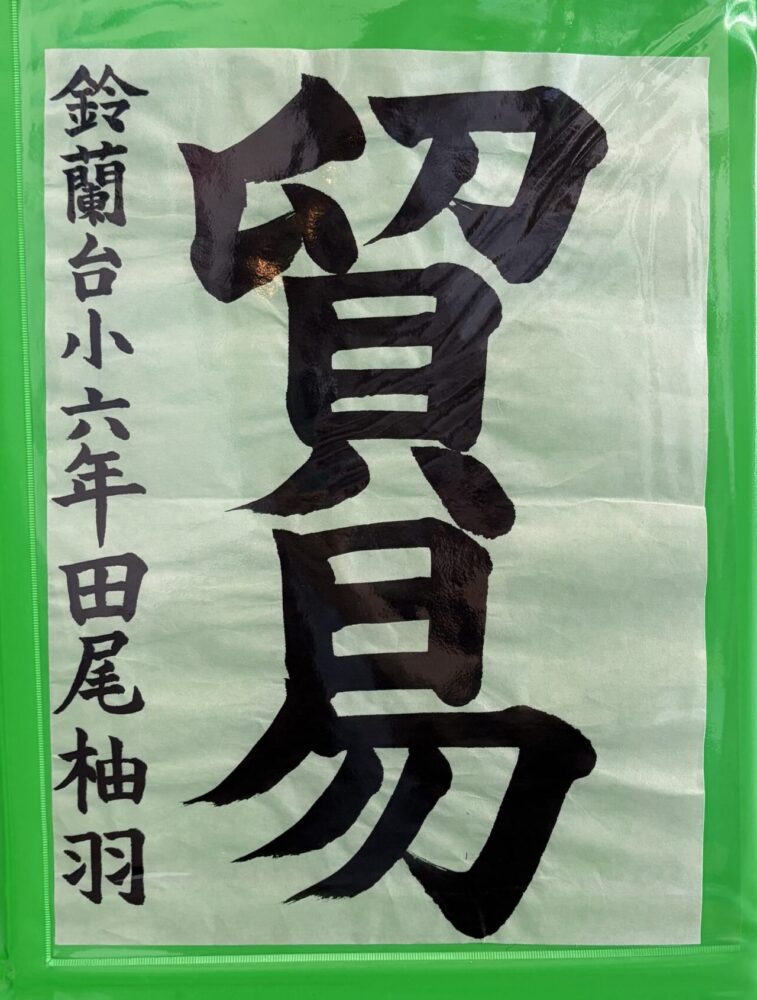 貿易
鈴蘭台小六年田尾柚羽